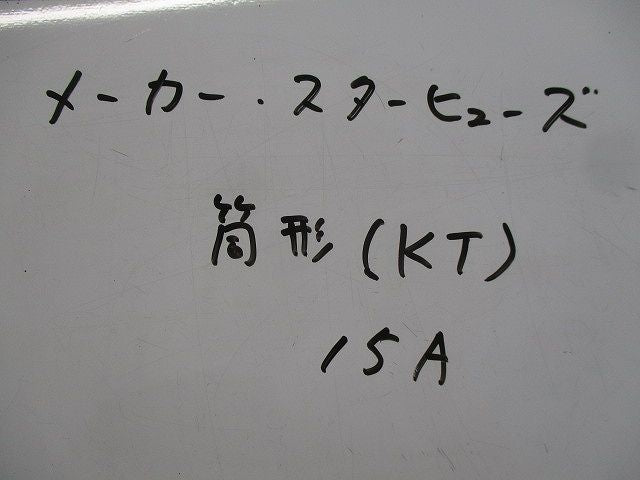 メーカー・スターヒューズ
筒形(KT)
15A